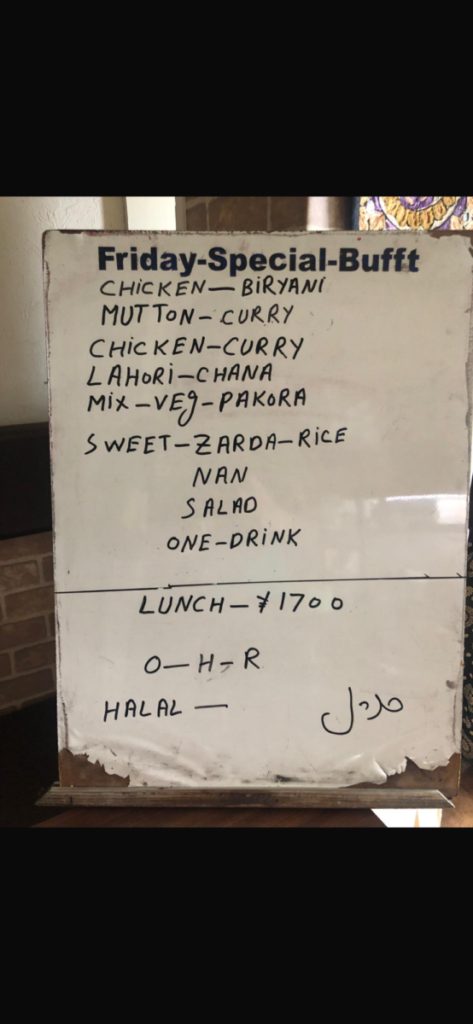 Friday-Special-Bufft
CHICKEN—BIRYANI
MUTTON-CURRY
CHICKEN-CURRY
LAHORI-CHANA
MIX-VEG-PAKORA
SWEET-ZARDA-RICE
NAN
SALAD
ONE-DRINK
LUNCH-¥1700
O-H-R
HALAL — حلال